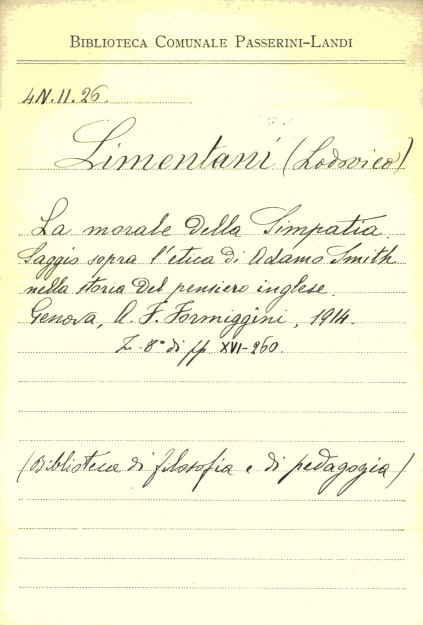 BIBLIOTECA COMUNALE PASSERINI-LANDI
4N.II.26.
Limentani (Lodovico)
La morale della Simpatia.
Saggio sopra l'etica di Adamo Smith
nella storia del pensiero inglese.
Genova, A. F. Formiggini, 1914.
In-8° di pp. XVI-260.
(Biblioteca di filosofia e di pedagogia)